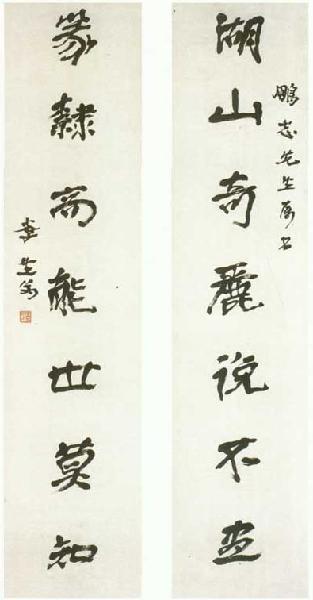 鵬志先生屬
湖山奇麗說不盡
篆隸高能世莫知
生翁